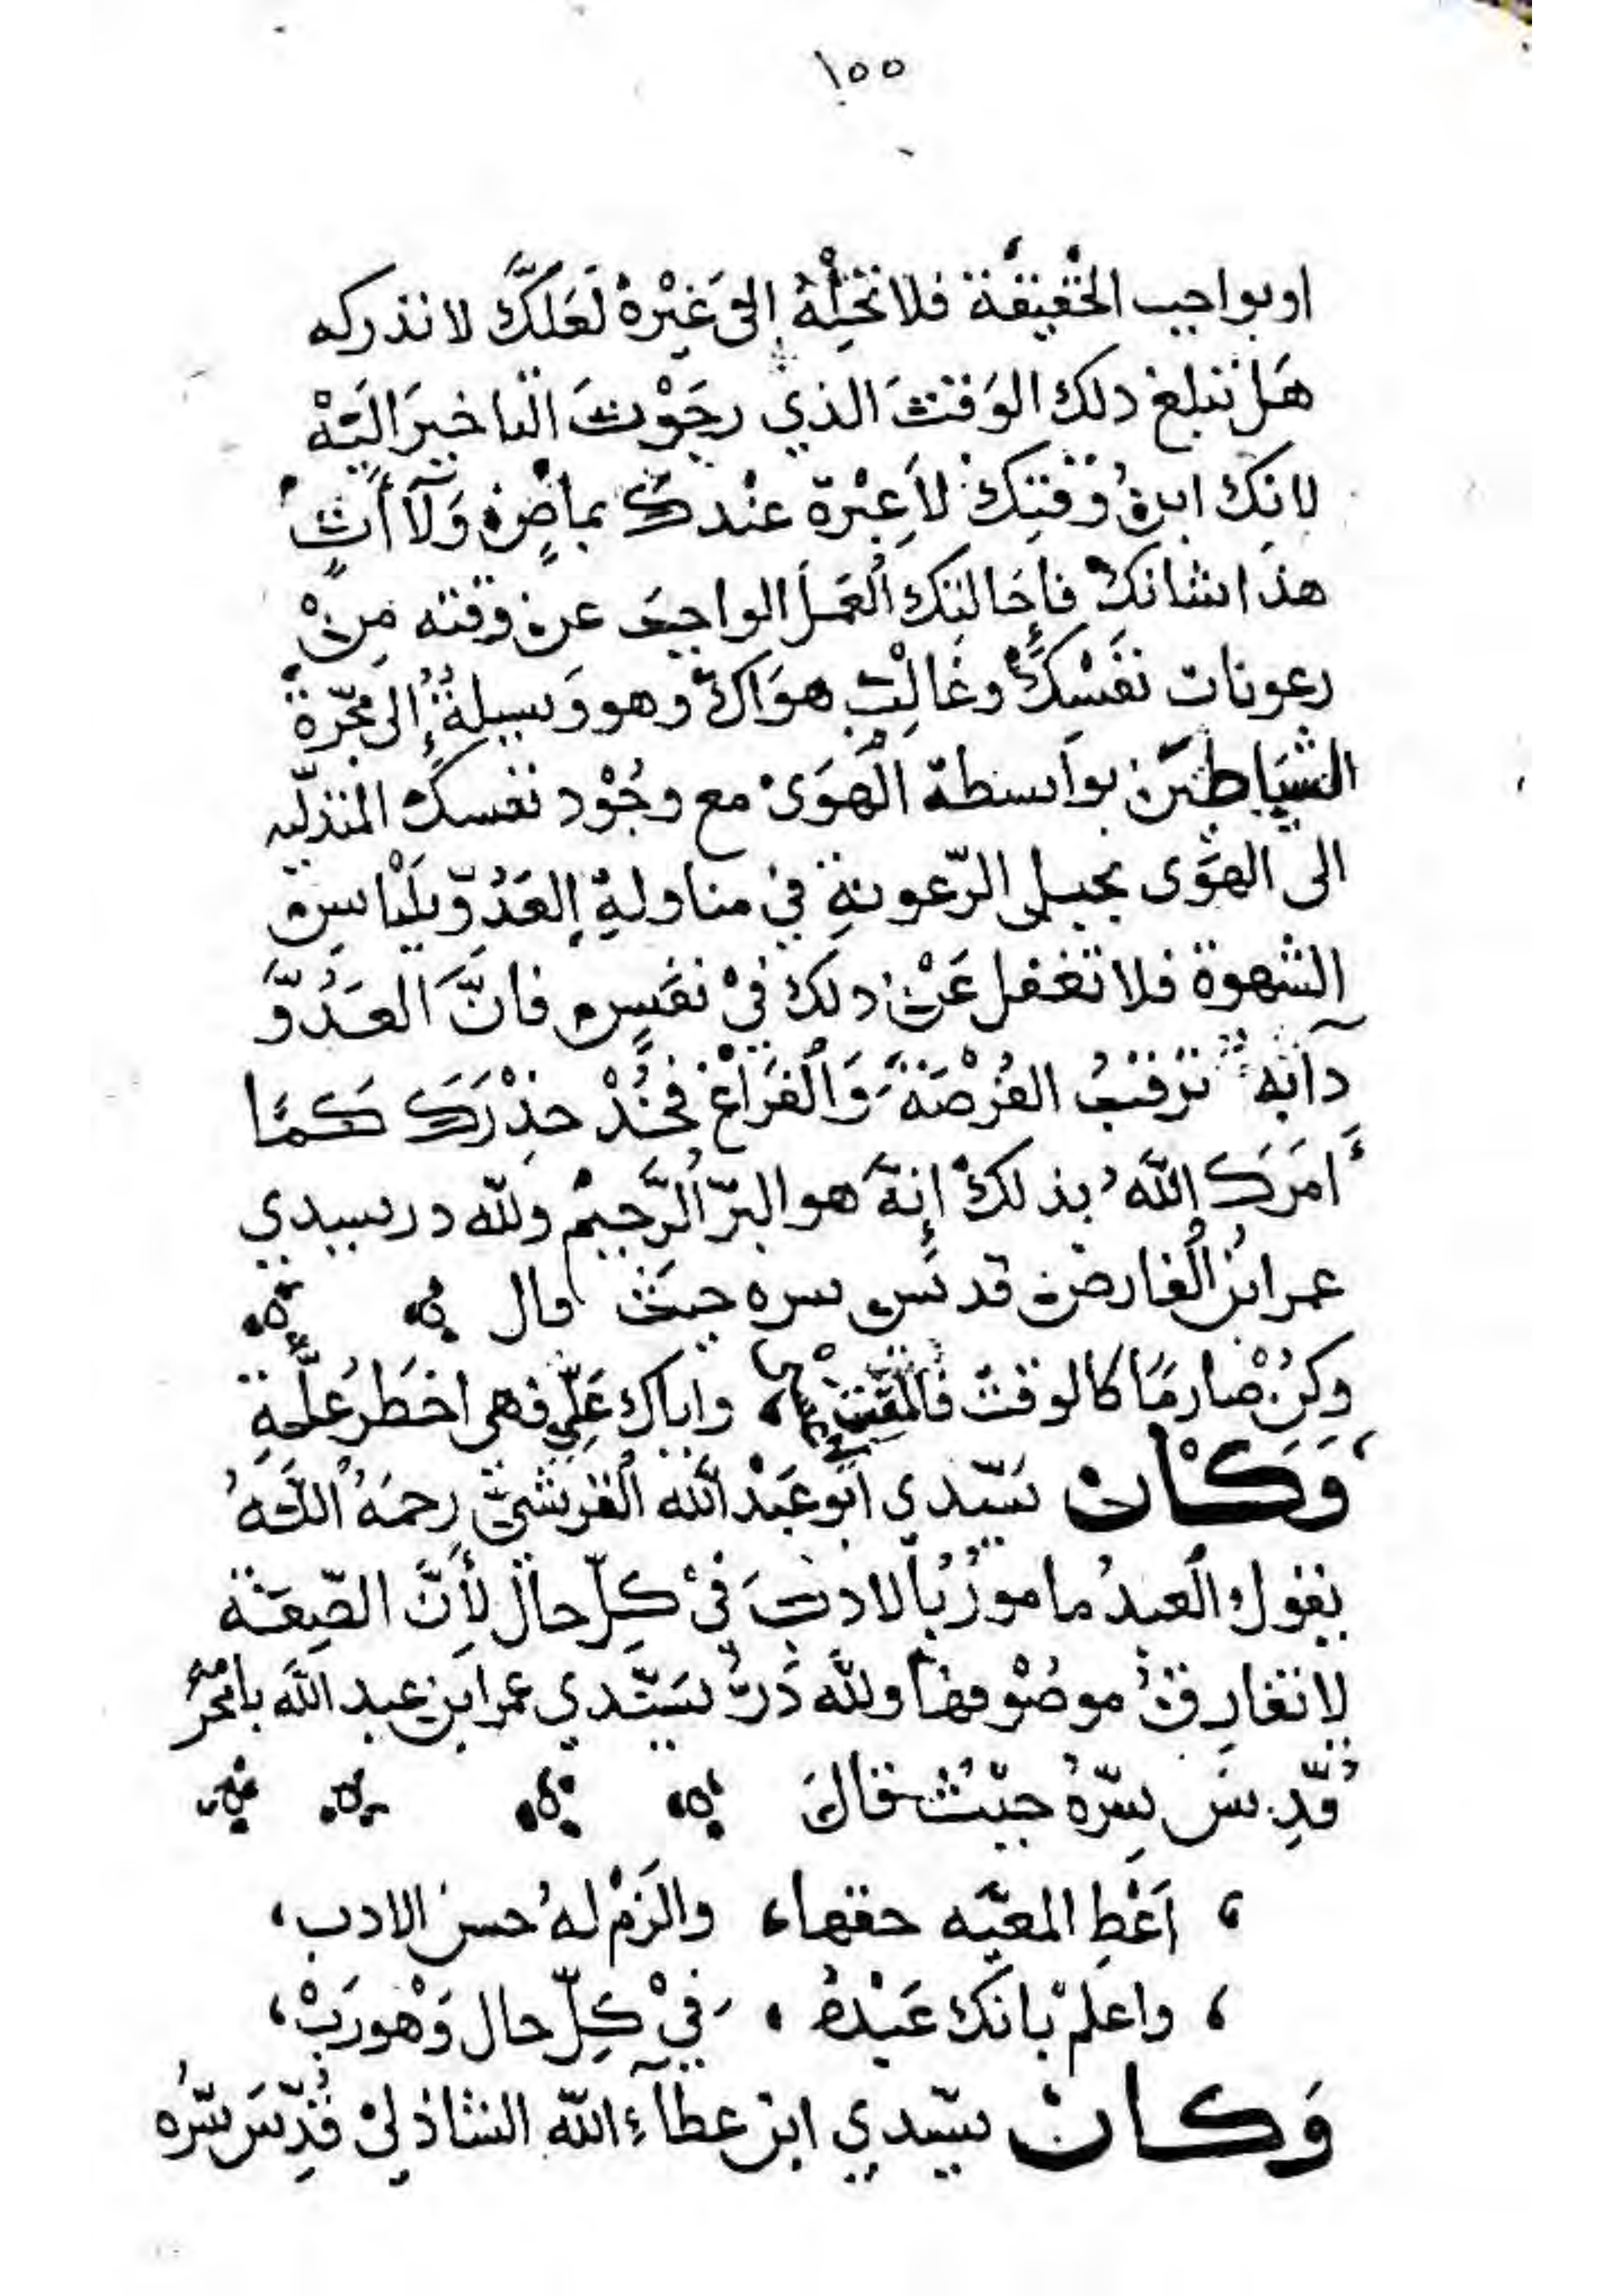 ١٥٥
او بواجب الحَقيقَة فلا تحَلْهُ إلى غَيْرهُ لَعَلَّكَ لا تدركه
هَل تبلغ ذلك الوَقتَ الذي رجَوْتَ التاخيرَ اليَهْ
لانِكَ ابنُ وَقتِكَ لاَ عِبْرَة عنْدكَ بماضٍ وَلَآ أتٍ
هذا شانكْ فاحَالتك العَملَ الواجبَ عن وقته مِنْ
رعونات نفَسْكَ وغَالِبْ هوَاكَ وهو وَسِيلةُ إلى مجّرة
الشيَاطيَن بواسطة الهَوَى مع وجُوْد نفسكَ المتدلّيه
الى الهوَى بحبلِ الرّعونةِ في مناولةِ العَدُوّ بلَباسِ
الشهوة فلا تغفل عَنْ ذلك فيْ نفَسٍ فانَّ العَدُوَّ
دآبه ترقبُ الفُرْصَةَ وَالفَرَاغْ فخُذْ حِذْرَكَ كَمَا
أمَرَكَ اللَّه بذلكْ إنهَ هو البرّ الرَّحِيمْ ولله در سيدي
عمر ابنُ الفارض قدسَ سره حيثَ قال
وكنْ صارمًا كالوقتْ فالمَقت واياك عَلّي فهي اخطَر عَلّةِ
وَكَان سَيّدي ابَو عَبْد الله القرشيّ رحمَهُ اللَّهُ
يقول العبدُ مامورُ بالادبَ فيْ كلِّ حالْ لأنَّ الصِّفَة
لا تفارقُ موصُوْفها ولله دَرُّ سيَّدي عمر ابن عبد الله بامخرمُ
قُدِّسَ سِرّهُ حيْث قالَ
، اَعْطِ المعيّه حقها، والزَمْ لهُ حسن الادب،
، واعلمْ بانكَ عَبْدهُ ، فيْ كلِّ حال وَهْو رَبْ،
وَكان سيّدي ابن عطآءِ اللّه الشاذليْ قُدِّسَ سّرُه